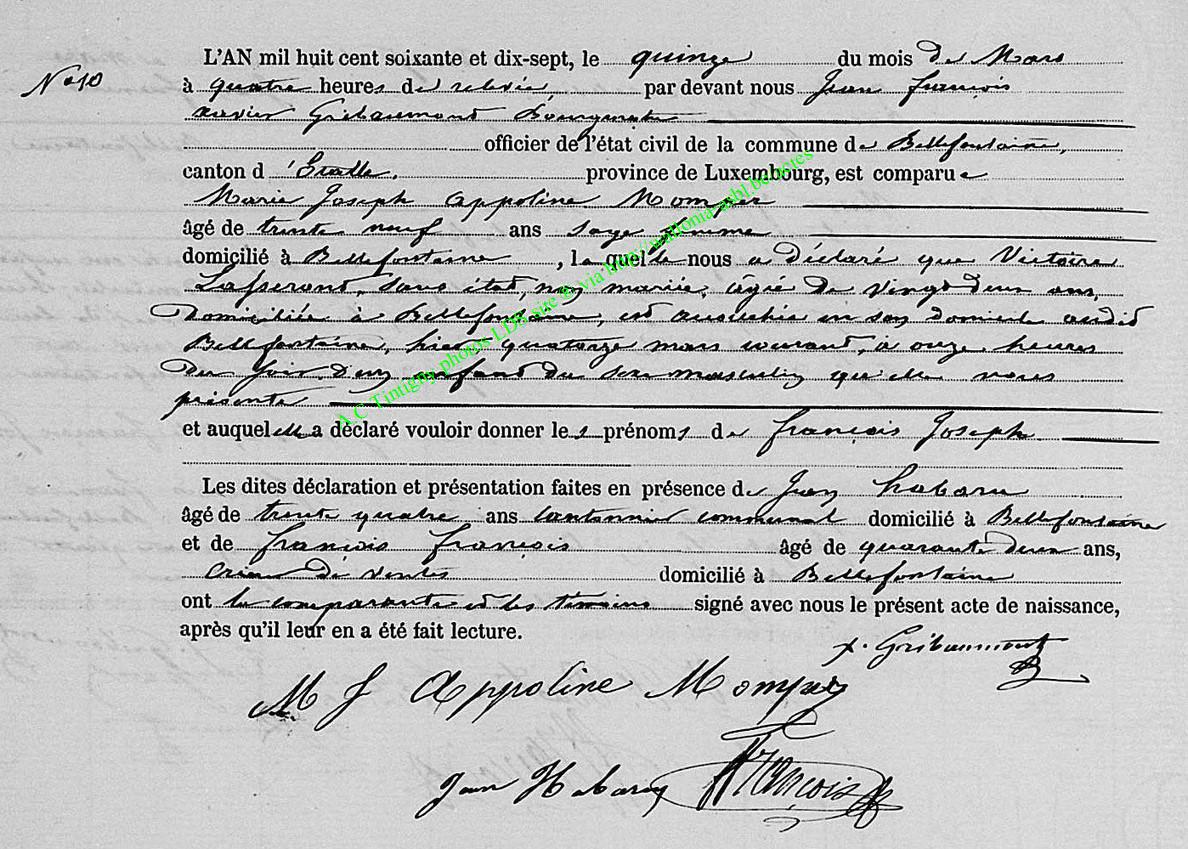 L'AN mil huit cent soixante et dix-sept, le quinze du mois de Mars
No 10
à quatre heures de relevée, par devant nous Jean françois
xavier Gribaumont Bourgmestre
officier de l'état civil de la commune de Bellefontaine,
canton d'Etalle. province de Luxembourg, est comparue
Marie Joseph Appoline Momper
âgé de trente neuf ans sage femme
domicilié à Bellefontaine, la quelle nous a déclaré que Victoire
sans état, non mariée, âgée de vingt deux ans,
Domiciliée à Bellefontaine, est accouchée en son domicile audit
Bellefontaine, hier quatorze mars courant, à onze heures
du soir, d'un enfant du sexe masculin qu'elle nous
présente
et auquel elle a déclaré vouloir donner les prénoms de françois Joseph
Les dites déclaration et présentation faites en présence de Jean habaru
âgé de trente quatre ans cantonnier communal domicilié à Bellefontaine
et de françois françois âgé de quarante deux ans,
crieur de ventes domicilié à Bellefontaine
ont la comparante et les témoins signé avec nous le présent acte de naissance,
après qu'il leur en a été fait lecture.
x. Gribaumont
M J Appoline Momper
Jean Habaru françois
A.C Tintigny photos LDS site & via http://wallonia-asbl.be/actes